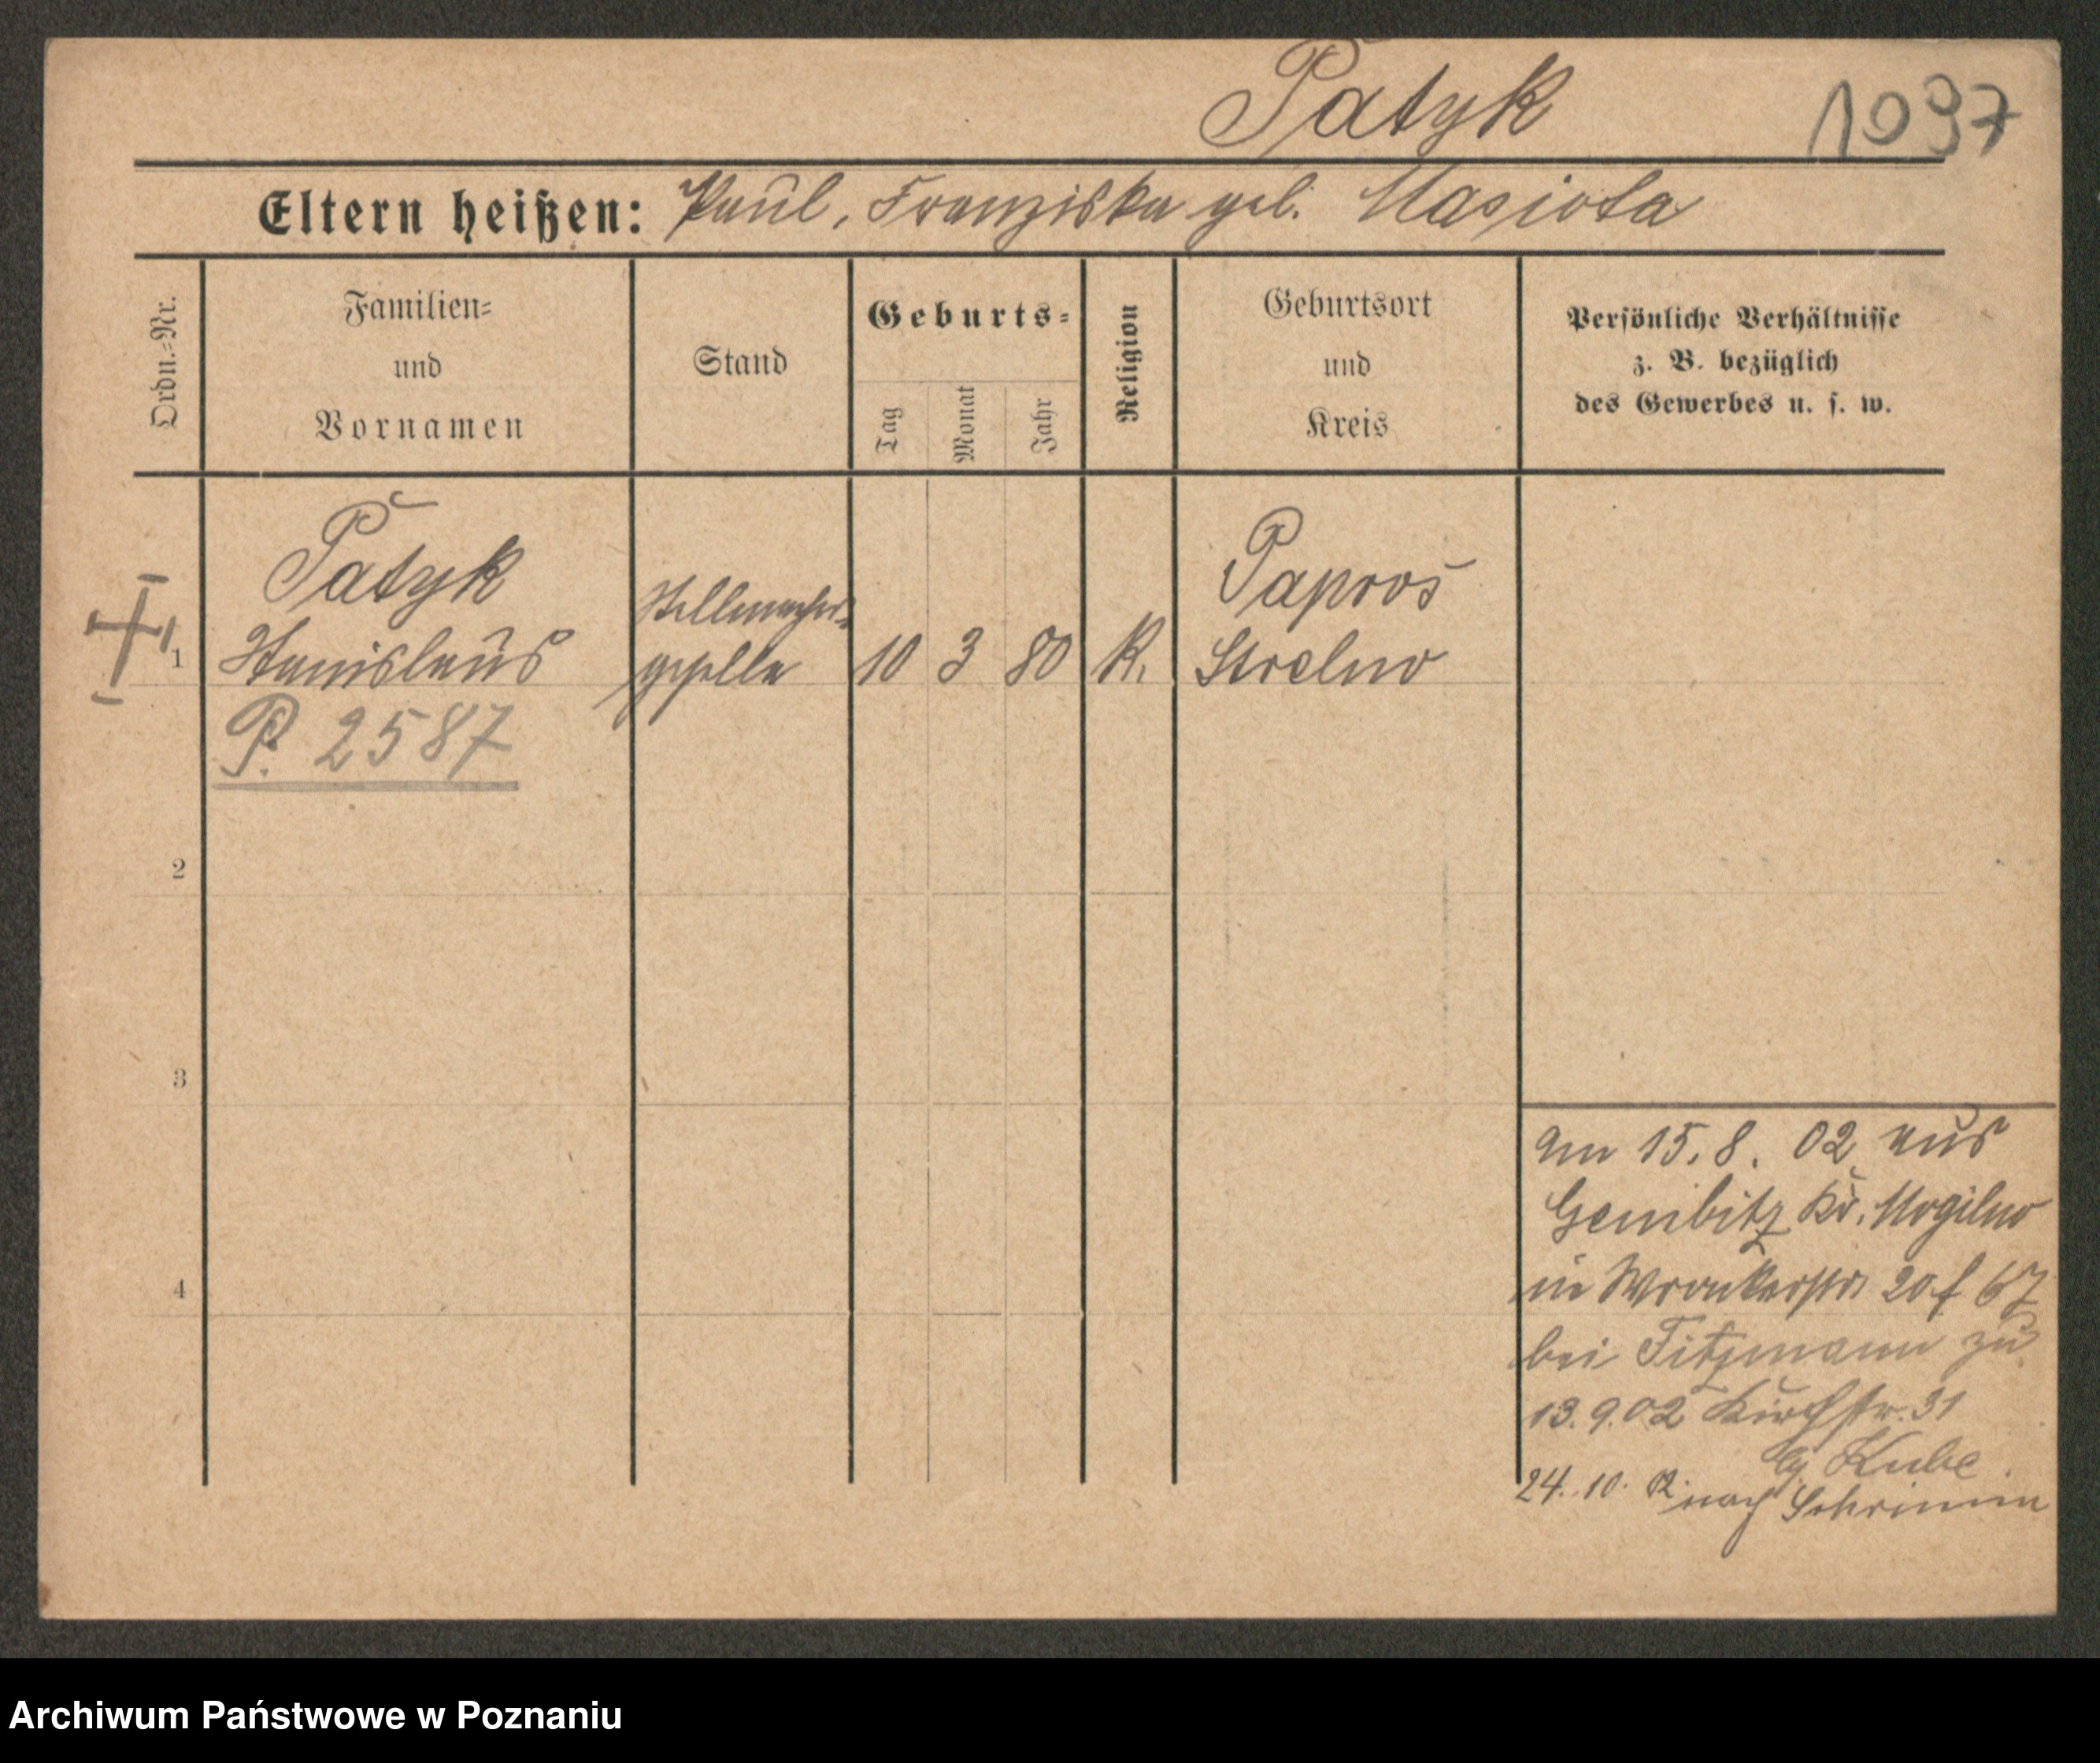 Patyk
1097
Eltern heißen: Paul, Franziska geb. Masiota
Ordn.-Nr.
Familien-
und
Vornamen
Stand
Geburts-
Tag
Monat
Jahr
Religion
Geburtsort
und
Kreis
Persönliche Verhältnisse
z. B. bezüglich
des Gewerbes u. s. w.
1
Patyk
Stanislaus
P. 2587
Stellmacher-
geselle
10 3 80
K.
Papros
Strelno
2
3
4
am 15. 8. 02 aus
Gembitz Kr. Mogilno
in Wronkerstr. 20
bei Titzmann zu
13. 9. 02 Kirchstr. 31
Kube
24. 10. 02 nach Schrimm
Archiwum Państwowe w Poznaniu